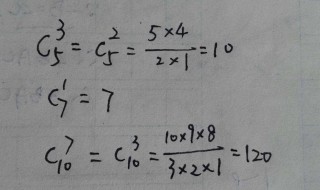 C₅³ = C₅² = (5×4)/(2×1) = 10
C₇¹ = 7
C₁₀⁷ = C₁₀³ = (10×9×8)/(3×2×1) = 120